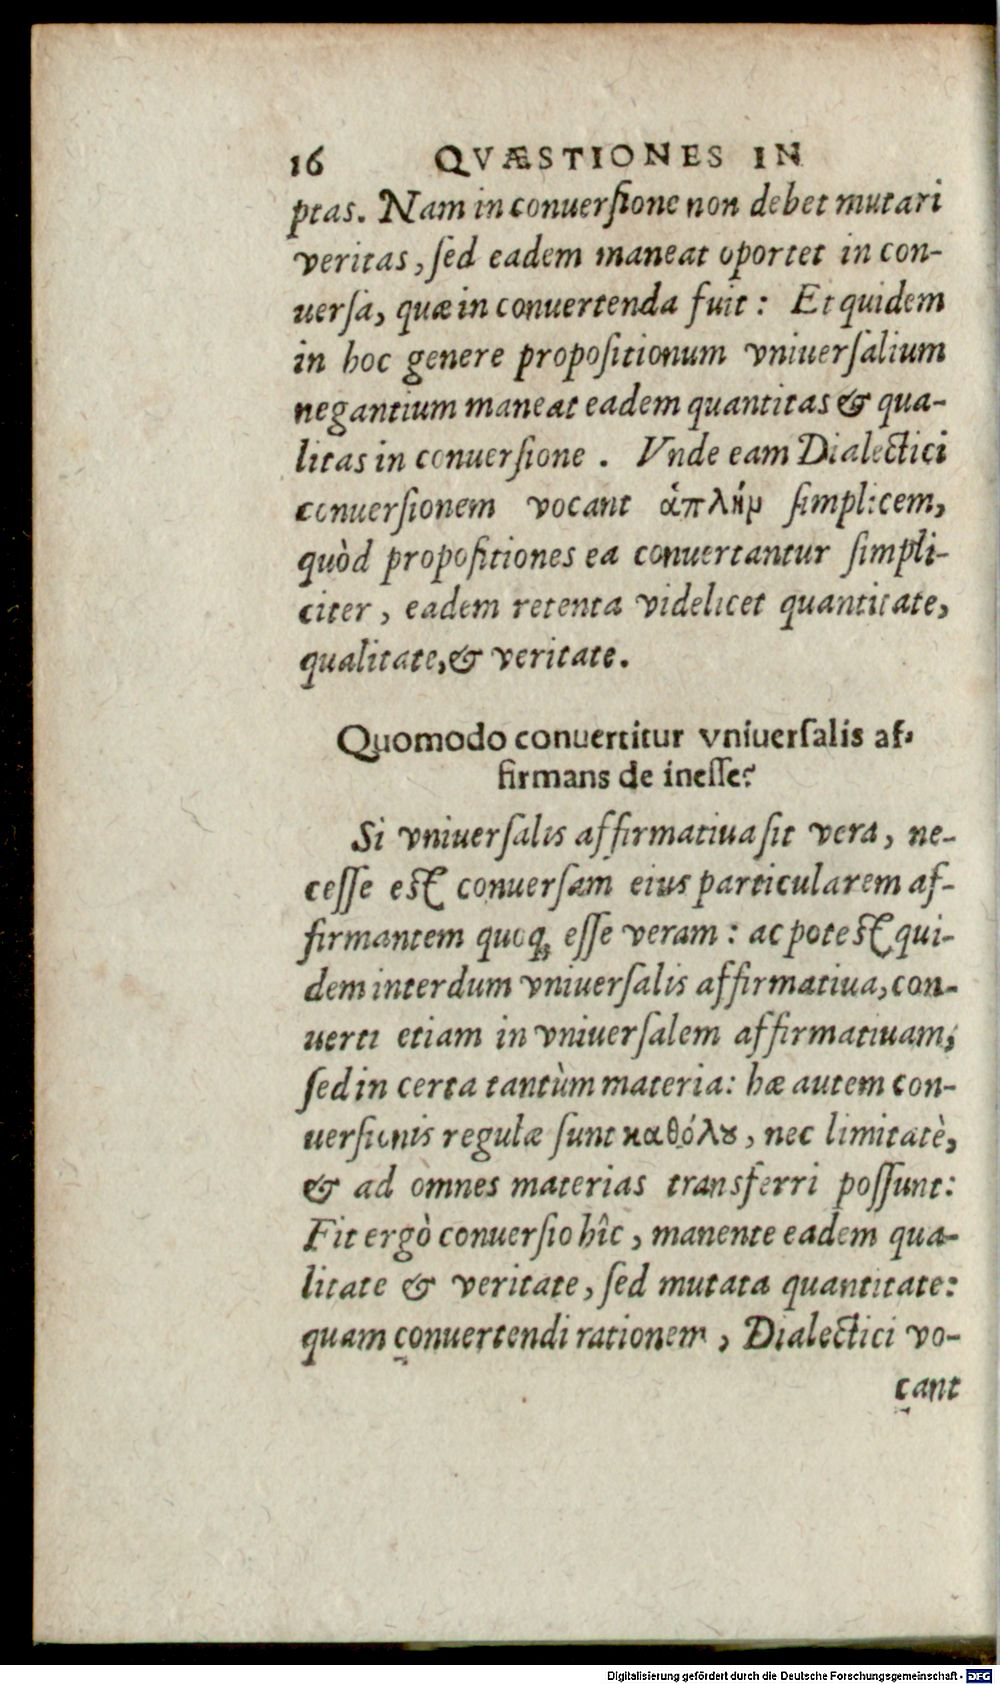 16 QVÆSTIONES IN
ptas. Nam in conuersione non debet mutari
veritas, sed eadem maneat oportet in con-
uersa, quæ in conuertenda fuit: Et quidem
in hoc genere propositionum vniuersalium
negantium maneat eadem quantitas & qua-
litas in conuersione. Vnde eam Dialectici
conuersionem vocant ἁπλὴν simplicem,
quòd propositiones ea conuertantur simpli-
citer, eadem retenta videlicet quantitate,
qualitate, & veritate.
Quomodo conuertitur vniuersalis af-
firmans de inesse?
Si vniuersalis affirmatiua sit vera, ne-
cesse est conuersam eius particularem af-
firmantem quoq; esse veram: ac potest qui-
dem interdum vniuersalis affirmatiua, con-
uerti etiam in vniuersalem affirmatiuam,
sed in certa tantùm materia: hæ autem con-
uersionis regulæ sunt καθόλου, nec limitatè,
& ad omnes materias transferri possunt:
Fit ergò conuersio hîc, manente eadem qua-
litate & veritate, sed mutata quantitate:
quam conuertendi rationem, Dialectici vo-
cant
Digitalisierung gefördert durch die Deutsche Forschungsgemeinschaft - DFG